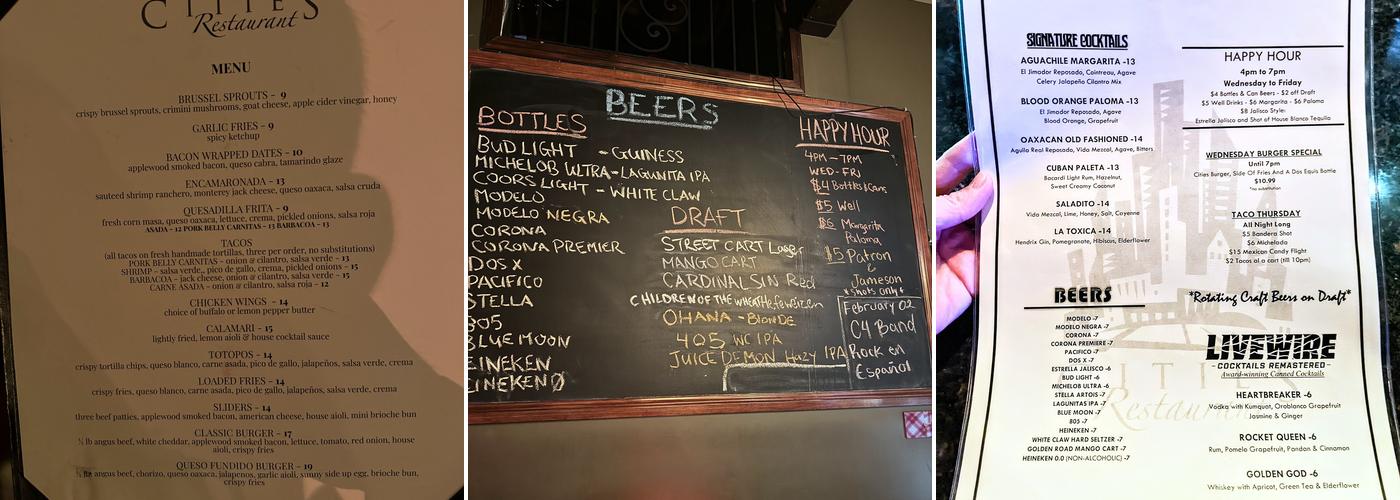 CITIES
Restaurant
MENU
BRUSSEL SPROUTS - 9
crispy brussel sprouts, crimini mushrooms, goat cheese, apple cider vinegar, honey
GARLIC FRIES - 9
spicy ketchup
BACON WRAPPED DATES - 10
applewood smoked bacon, queso cabra, tamarindo glaze
ENCAMARONADA - 13
sauteed shrimp ranchero, monterey jack cheese, queso oaxaca, salsa cruda
QUESADILLA FRITA - 9
fresh corn masa, queso oaxaca, lettuce, crema, pickled onions, salsa roja
ASADA - 12 PORK BELLY CARNITAS - 13 BARBACOA - 13
TACOS
(all tacos on fresh handmade tortillas, three per order, no substitutions)
PORK BELLY CARNITAS - onion & cilantro, salsa verde - 13
SHRIMP - salsa verde,, pico de gallo, crema, pickled onions - 15
BARBACOA - jack cheese, onion & cilantro, salsa verde - 15
CARNE ASADA - onion & cilantro, salsa roja - 12
CHICKEN WINGS - 14
choice of buffalo or lemon pepper butter
CALAMARI - 15
lightly fried, lemon aioli & house cocktail
TOTOPOS - 14
crispy tortilla chips, queso blanco, carne asada, pico de gallo, jalapeños, salsa verde, crema
LOADED FRIES - 14
crispy fries, queso blanco, carne asada, pico de gallo, jalapeños, salsa verde, crema
SLIDERS - 14
three beef patties, applewood smoked bacon, american cheese, house aioli, mini brioche bun
CLASSIC BURGER - 17
½ lb angus beef, white cheddar, applewood smoked bacon, lettuce, tomato, red onion, house
aioli, crispy fries
QUESO FUNDIDO BURGER - 19
angus beef, chorizo, queso oaxaca, jalapenos, garlic aioli, sunny side up egg, brioche bun,
crispy fries
BEERS
BOTTLES
BUD LIGHT - GUINESS
MICHELOB ULTRA - LAGUNITA IPA
COORS LIGHT - WHITE CLAW
MODELO
MODELO NEGRA
CORONA
CORONA PREMIER
DOS X
PACIFICO
STELLA
805
BLUE MOON
EINEKEN
EINEKEN Ø
DRAFT
STREET CART Lager
MANGO CART
CARDINAL SIN Red
CHILDREN OF THE WHEAT Hefeweizen
OHANA - BLONDE
405 WC IPA
JUICE DEMON HaZY IPA
HAPPY HOUR
4PM - 7PM
WED - FRI
$4 Bottles & Cans
$5 Well
$6 Margarita
Paloma
$5 Patron
&
Jameson
*Shots only*
February 02
C4 Band
Rock en
Español
SIGNATURE COCKTAILS
AGUACHILE MARGARITA -13
El Jimador Reposado, Cointreau, Agave
Celery Jalapeño Cilantro Mix
BLOOD ORANGE PALOMA -13
El Jimador Reposado, Agave
Blood Orange, Grapefruit
OAXACAN OLD FASHIONED -14
Agulla Real Reposado, Vida Mezcal, Agave, Bitters
CUBAN PALETA -13
Bacardi Light Rum, Hazelnut,
Sweet Creamy Coconut
SALADITO -14
Vida Mezcal, Lime, Honey, Salt, Cayenne
LA TOXICA -14
Hendrix Gin, Pomegranate, Hibiscus, Elderflower
BEERS
MODELO -7
MODELO NEGRA -7
CORONA -7
CORONA PREMIERE -7
PACIFICO -7
DOS X -7
ESTRELLA JALISCO -6
BUD LIGHT -6
MICHELOB ULTRA -6
STELLA ARTOIS -7
LAGUNITAS IPA -7
BLUE MOON -7
805 -7
HEINEKEN -7
WHITE CLAW HARD SELTZER -7
GOLDEN ROAD MANGO CART -7
HEINEKEN 0.0 (NON-ALCOHOLIC) -7
HAPPY HOUR
4pm to 7pm
Wednesday to Friday
$4 Bottles & Can Beers - $2 off Draft
$5 Well Drinks - $6 Margarita - $6 Paloma
$8 Jalisco Style:
Estrella Jalisco and Shot of House Blanco Tequila
WEDNESDAY BURGER SPECIAL
Until 7pm
Cities Burger, Side Of Fries And A Dos Equis Bottle
$10.99
*no substitution
TACO THURSDAY
All Night Long
$5 Bandera Shot
$6 Michelada
$15 Mexican Candy Flight
$2 Tacos al a cart (till 10pm)
*Rotating Craft Beers on Draft*
LIVEWIRE
-COCKTAILS REMASTERED-
Award-winning Canned Cocktails
HEARTBREAKER -6
Vodka with Kumquat, Oroblanco Grapefruit
Jasmine & Ginger
ROCKET QUEEN -6
Rum, Pomelo Grapefruit, Pandan & Cinnamon
GOLDEN GOD -6
Whiskey with Apricot, Green Tea & Elderflower
CITIES
Restaurant